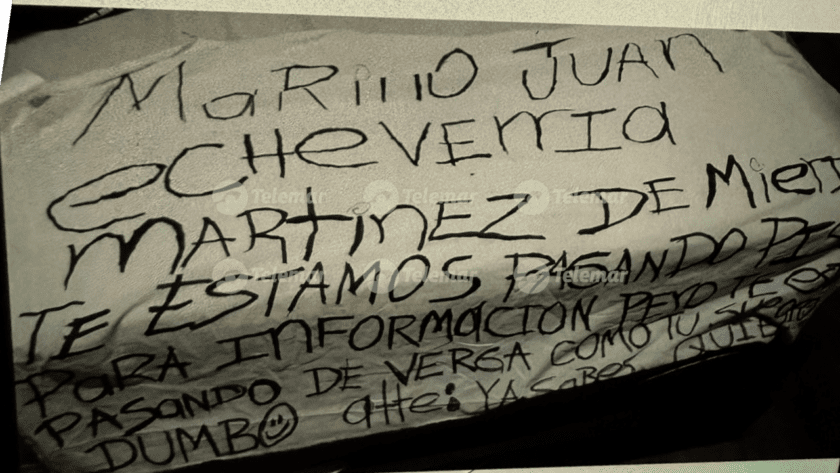 MaRiNO JUAN
eCHeVErrIa
MARTiNEZ DE Mierr
TE ESTAMOS PASANDO
PaRA InFORMaCION PErO TE
PASaNDO DE VERGA COMO TU
DUMBO atte: YA SaBeS QUIEn
Telemar Telemar Telemar
Telemar Telemar Telemar